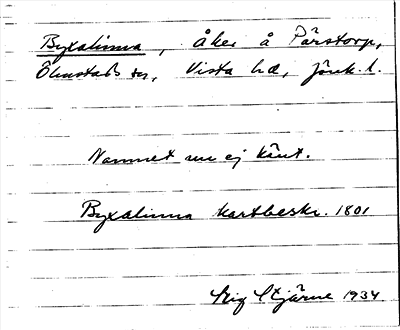 Byxalinna, åker å Pärstorp,
Ölmstads sn, Vista hd, Jönk. l.
Namnet nu ej känt.
Byxalinna kartbeskr. 1801
Stig Stjärne 1934